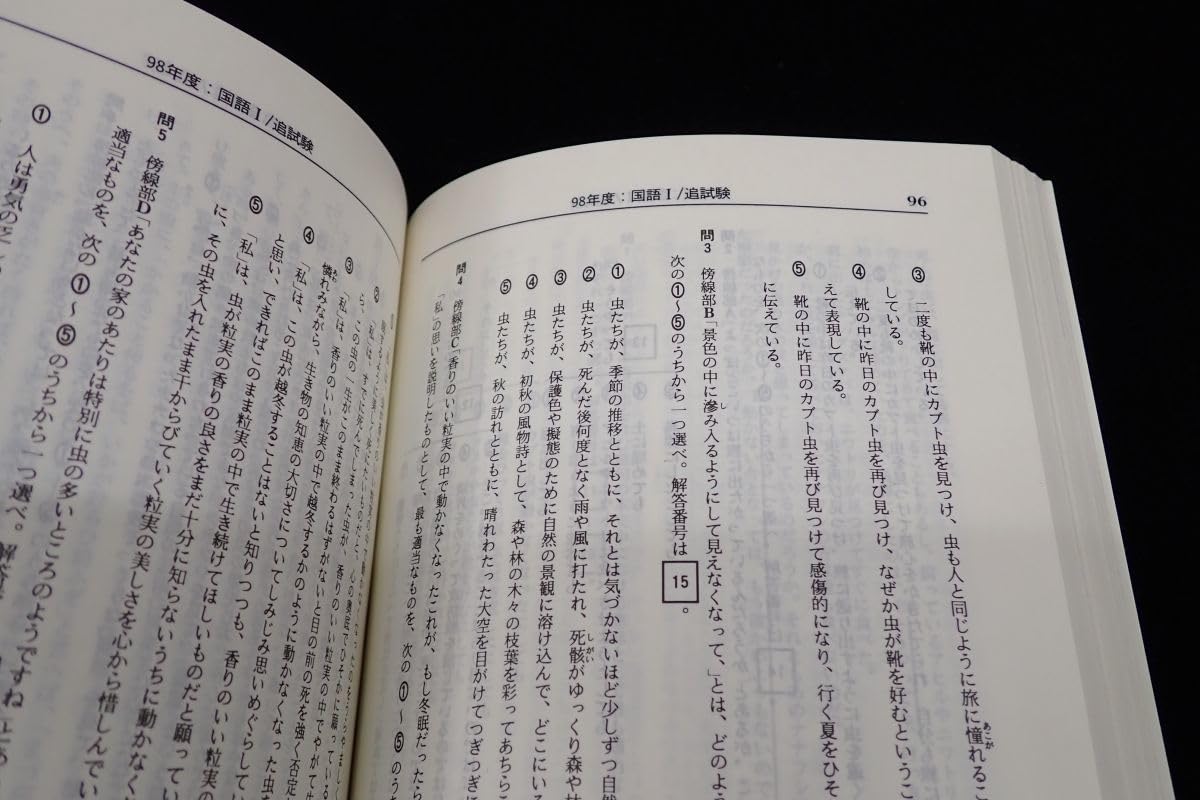 98年度：国語Ⅰ/追試験 96
③ 二度も靴の中にカブト虫を見つけ、虫も人と同じように旅に憧れるこ
している。
④ 靴の中に昨日のカブト虫を再び見つけ、なぜか虫が靴を好むというこ
えて表現している。
⑤ 靴の中に昨日のカブト虫を再び見つけて感傷的になり、行く夏をひそ
に伝えている。
問3 傍線部B「景色の中に滲み入るようにして見えなくなって、」とは、どのよう
次の①〜⑤のうちから一つ選べ。解答番号は 15 。
① 虫たちが、季節の推移とともに、それとは気づかないほど少しずつ自然
② 虫たちが、死んだ後何度となく雨や風に打たれ、死骸がゆっくり森や林
③ 虫たちが、保護色や擬態のために自然の景観に溶け込んで、どこにいる
④ 虫たちが、初秋の風物詩として、森や林の木々の枝葉を彩ってあちらこ
⑤ 虫たちが、秋の訪れとともに、晴れわたった大空を目がけてつぎつぎに
問4 傍線部C「香りのいい粒実の中で動かなくなったこれが、もし冬眠だったら
「私」の思いを説明したものとして、最も適当なものを、次の①〜⑤のうち
98年度：国語Ⅰ/追試験
②「私」は、すでに死んでしまった虫が、香りのいい粒実の中でやがて生
ら、この虫の一生がこのまま終わるはずがないと目の前の死を強く否定
③「私」は、香りのいい粒実の中で越冬するかのように動かなくなった虫を
憐れみながら、生き物の知恵の大切さについてしみじみ思いめぐらしてい
④「私」は、この虫が越冬することはないと知りつつも、香りのいい粒実
と思い、できればこのまま粒実の中で生き続けてほしいものだと願ってい
⑤「私」は、虫が粒実の香りの良さをまだ十分に知らないうちに動かなく
に、その虫を入れたまま干からびていく粒実の美しさを心から惜しんでい
問5 傍線部D「あなたの家のあたりは特別に虫の多いところのようですね」とあ
適当なものを、次の①〜⑤のうちから一つ選べ。
① 人は勇気の